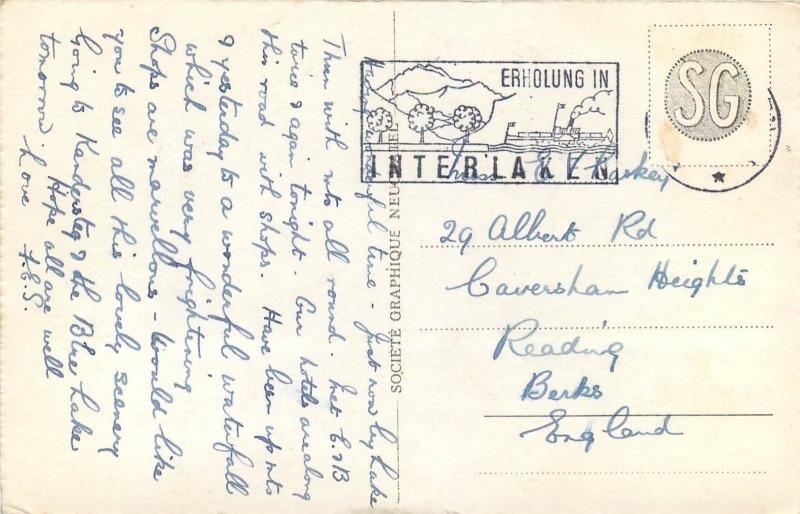 Having wonderful time - Just now by Lake
Thun with mts all round. Met E & B
twice & again tonight. Our hotels are along
this road with shops. Have been up mts
& yesterday to a wonderful waterfall
which was very frightening
Shops are marvellous - Would like
you to see all this lovely scenery
Going to Kandersteg & the Blue Lake
tomorrow. Hope all are well
Love
SOCIÉTÉ GRAPHIQUE NEUCHATEL
ERHOLUNG IN
INTERLAKEN
SG
Miss
29 Albert Rd
Caversham Heights
Reading
Berks
England